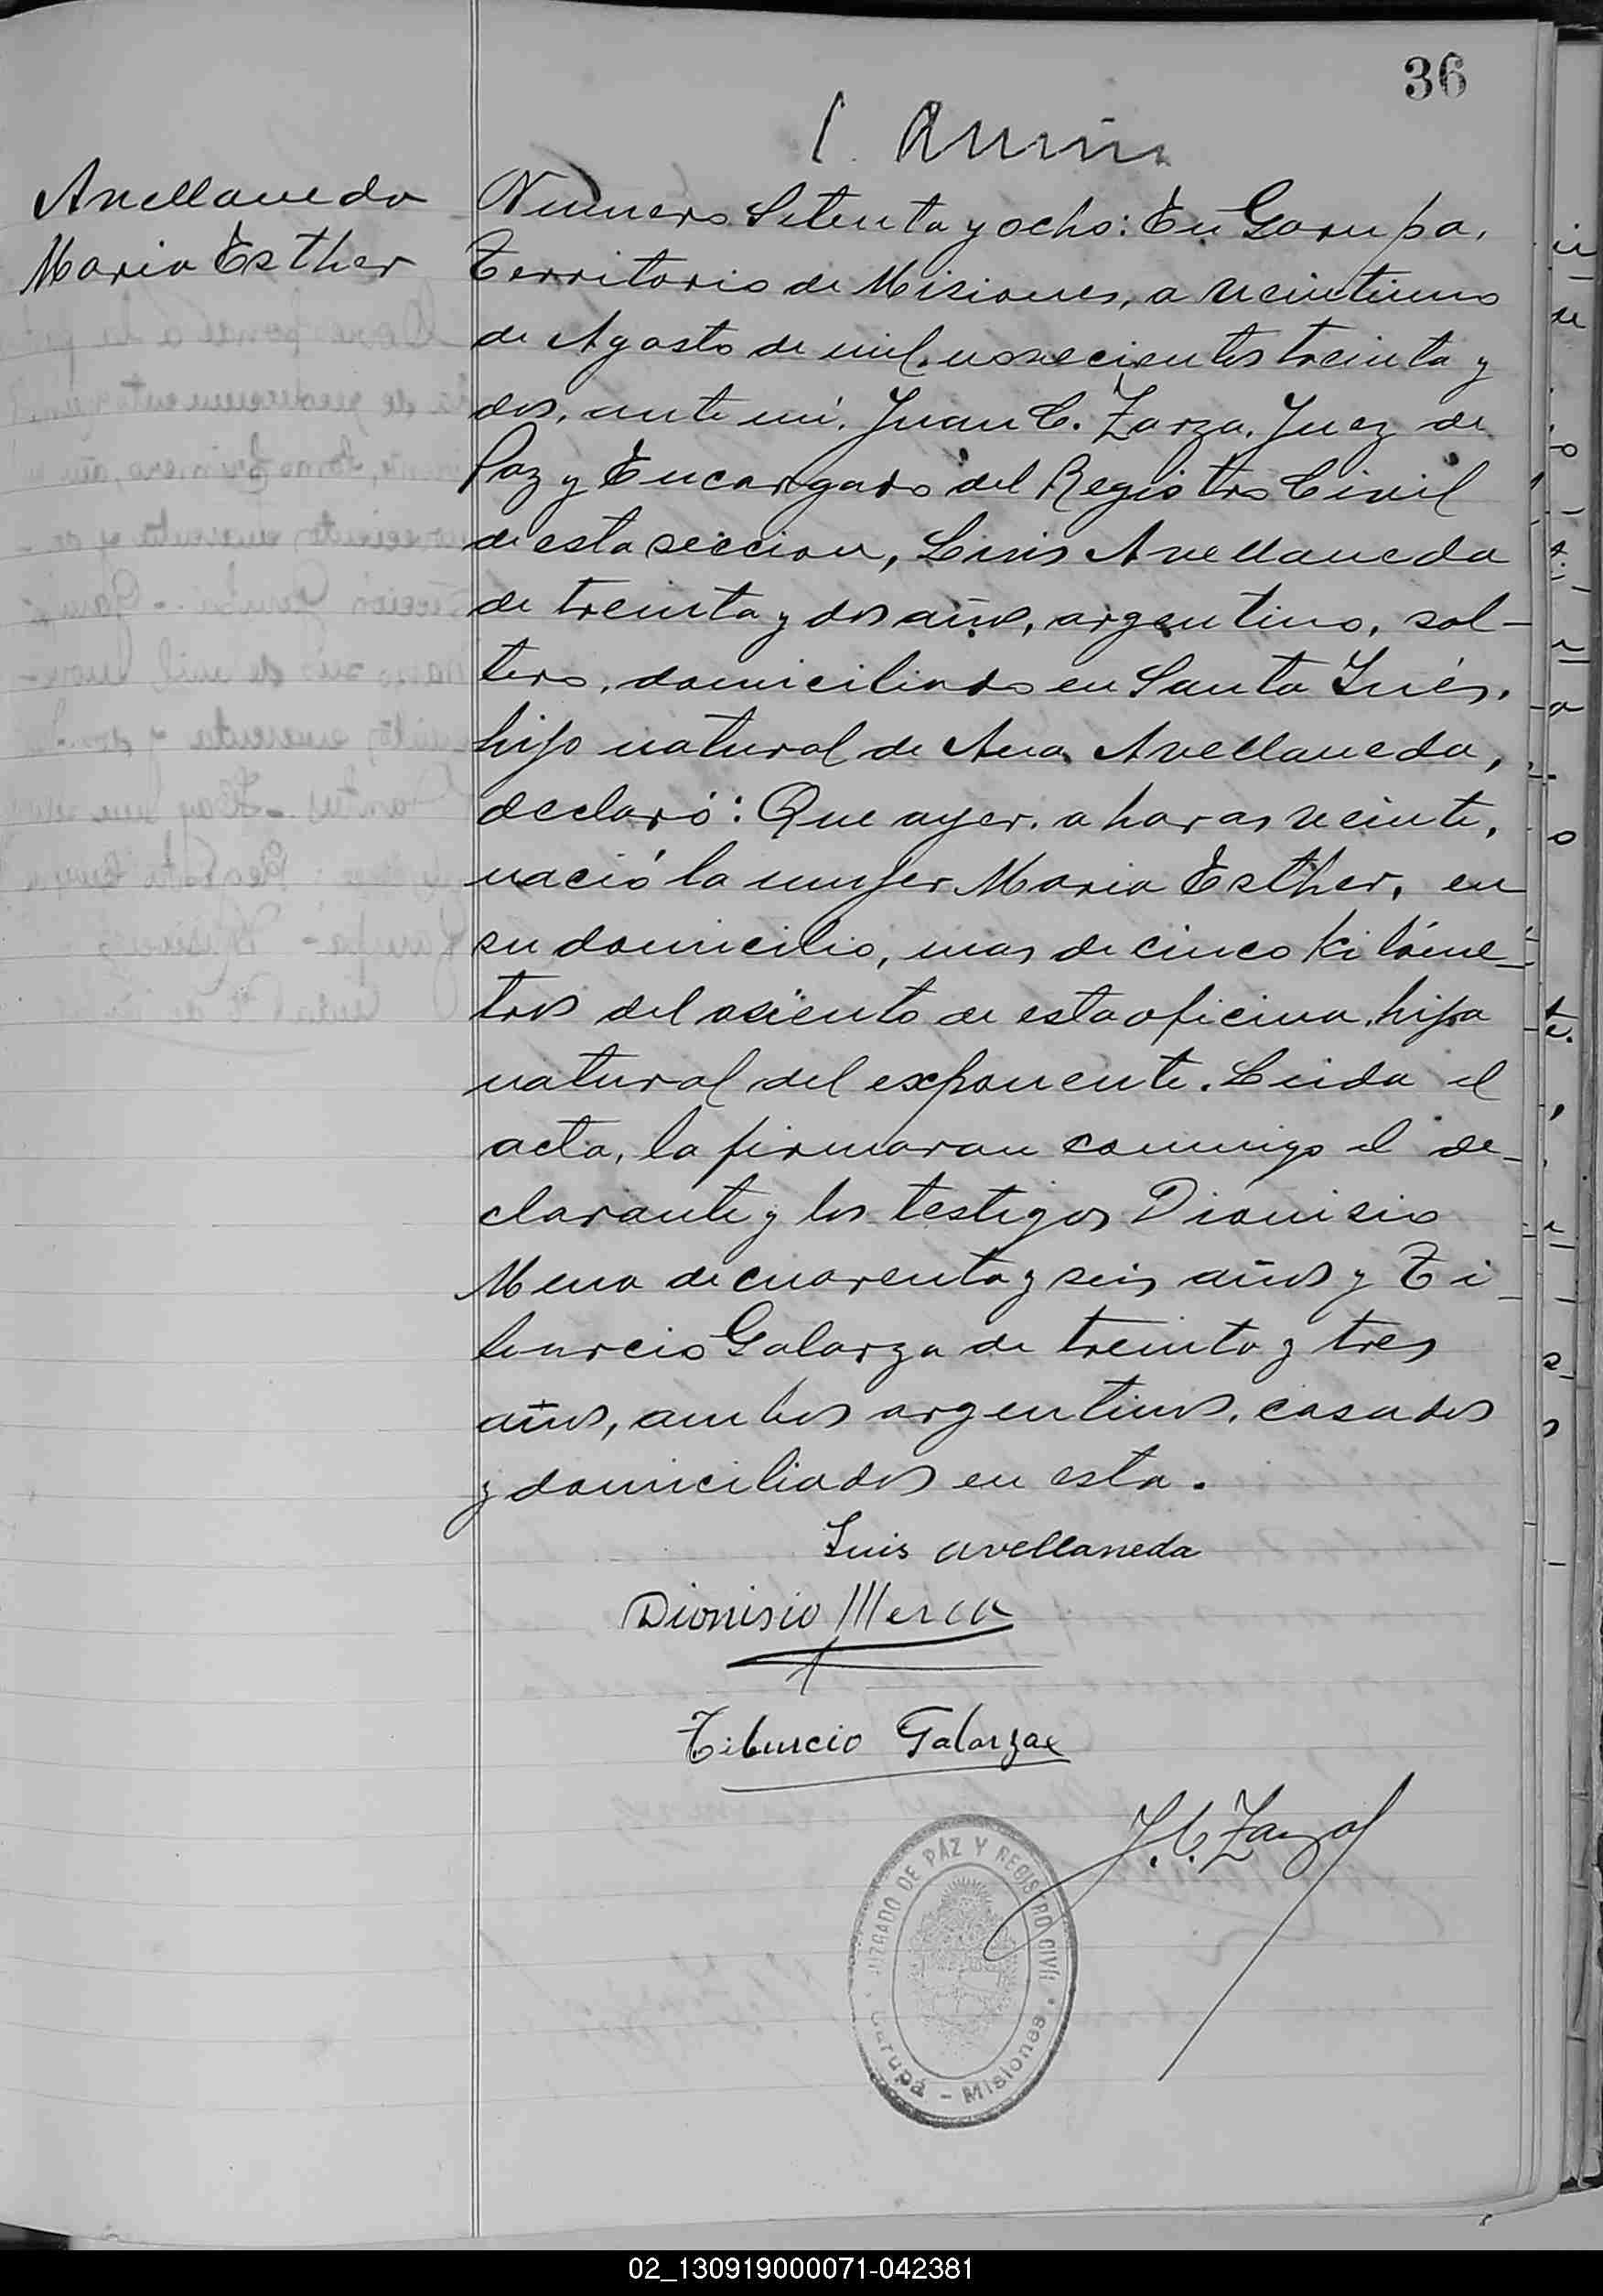 36
Avellaneda
Maria Esther
Numero Setenta y ocho: En Garupa,
Territorio de Misiones, a veintiuno
de Agosto de mil novecientos treinta y
dos, ante mi, Juan C. Zarza, Juez de
Paz y Encargado del Registro Civil
de esta seccion, Luis Avellaneda
de treinta y dos años, argentino, sol-
tero, domiciliado en Santa Inés,
hijo natural de Ana Avellaneda,
declaró: Que ayer, a horas veinte,
nació la mujer Maria Esther, en
su domicilio, mas de cinco kilóme-
tros del asiento de esta oficina, hija
natural del exponente. Leida el
acta, la firmaran conmigo el de-
clarante y los testigos Dionisio
Mena de cuarenta y seis años y Ti-
burcio Galarza de treinta y tres
años, ambos argentinos, casados
y domiciliados en esta.
Luis avellaneda
Dionisio Mena
Tiburcio Galarza
J. C. Zarza
JUZGADO DE PAZ Y REGISTRO CIVIL
Garupá - Misiones
02_130919000071-042381